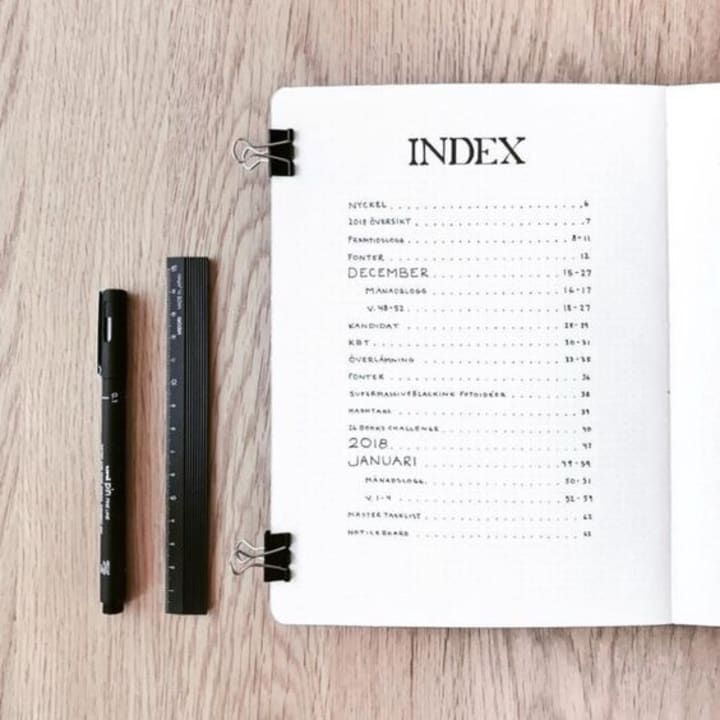 INDEX
NYCKEL 6
2018 ÖVERSIKT 7
FRAMTIDSLOGG 8-11
FONTER 12
DECEMBER 15-27
MÅNADSLOGG 16-17
V. 48-52 18-27
KANDIDAT 28-29
KBT 30-31
ÖVERLÄMNING 33-35
FONTER 36
SUPERMASSIVEBLACKINK FOTOIDÉER 38
HASHTAGS 39
26 BOOKS CHALLENGE 40
2018 47
JANUARI 49-59
MÅNADSLOGG 50-51
V. 1-4 52-59
MASTER TASKLIST 62
NOTICEBOARD 63
0.1
uni pin FINE LINE